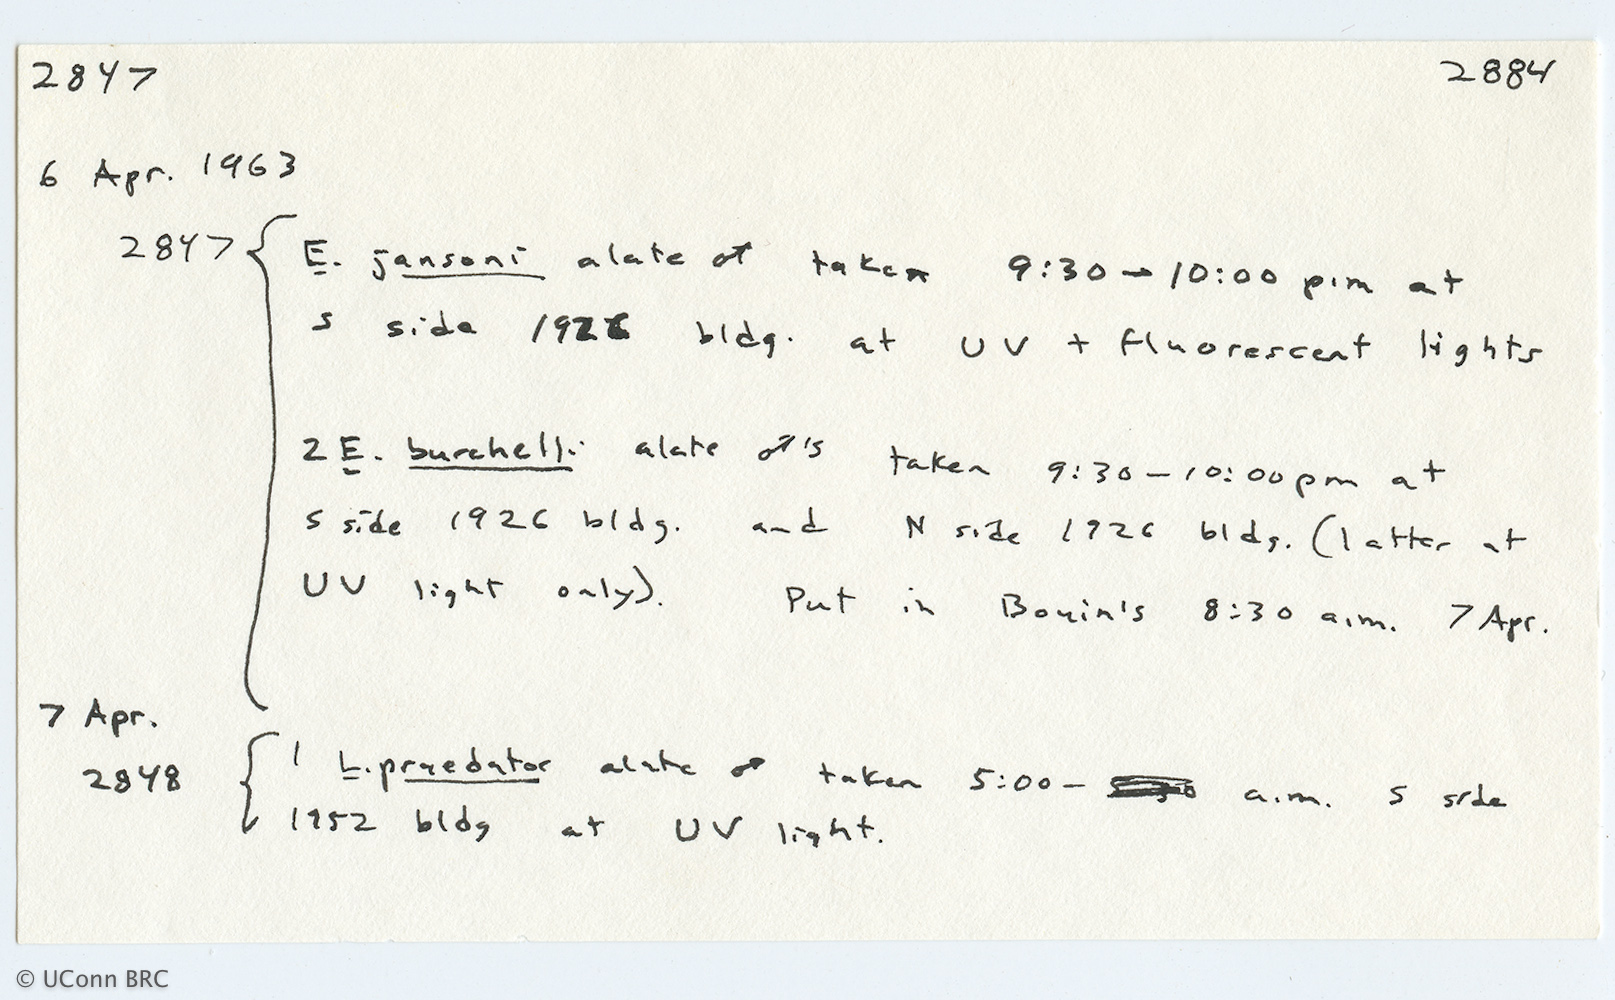 2847 2884
6 Apr. 1963
2847 { E. jansoni alate ♂ taken 9:30 → 10:00 p.m at
S side 1926 bldg. at UV + fluorescent lights
2 E. burchelli alate ♂'s taken 9:30 – 10:00 pm at
S side 1926 bldg. and N side 1926 bldg. (latter at
UV light only). Put in Bouin's 8:30 a.m. 7 Apr.
7 Apr.
2848 { 1 L. praedator alate ♂ taken 5:00 – a.m. S side
1952 bldg at UV light.
© UConn BRC